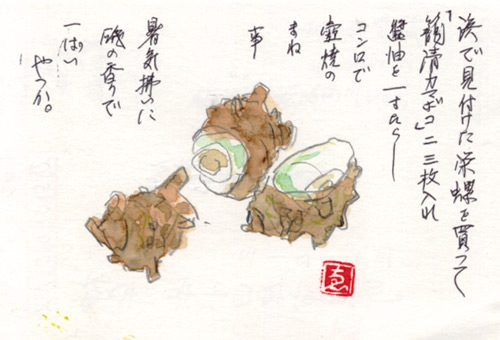 浜で見付けた栄螺を買って
「籠清カマボコ」二三枚入れ
醤油を一すたらし
コンロで
壺焼の
まね
事
暑気拂いに
磯の香りで
一ぱい
やっか。
ゑ